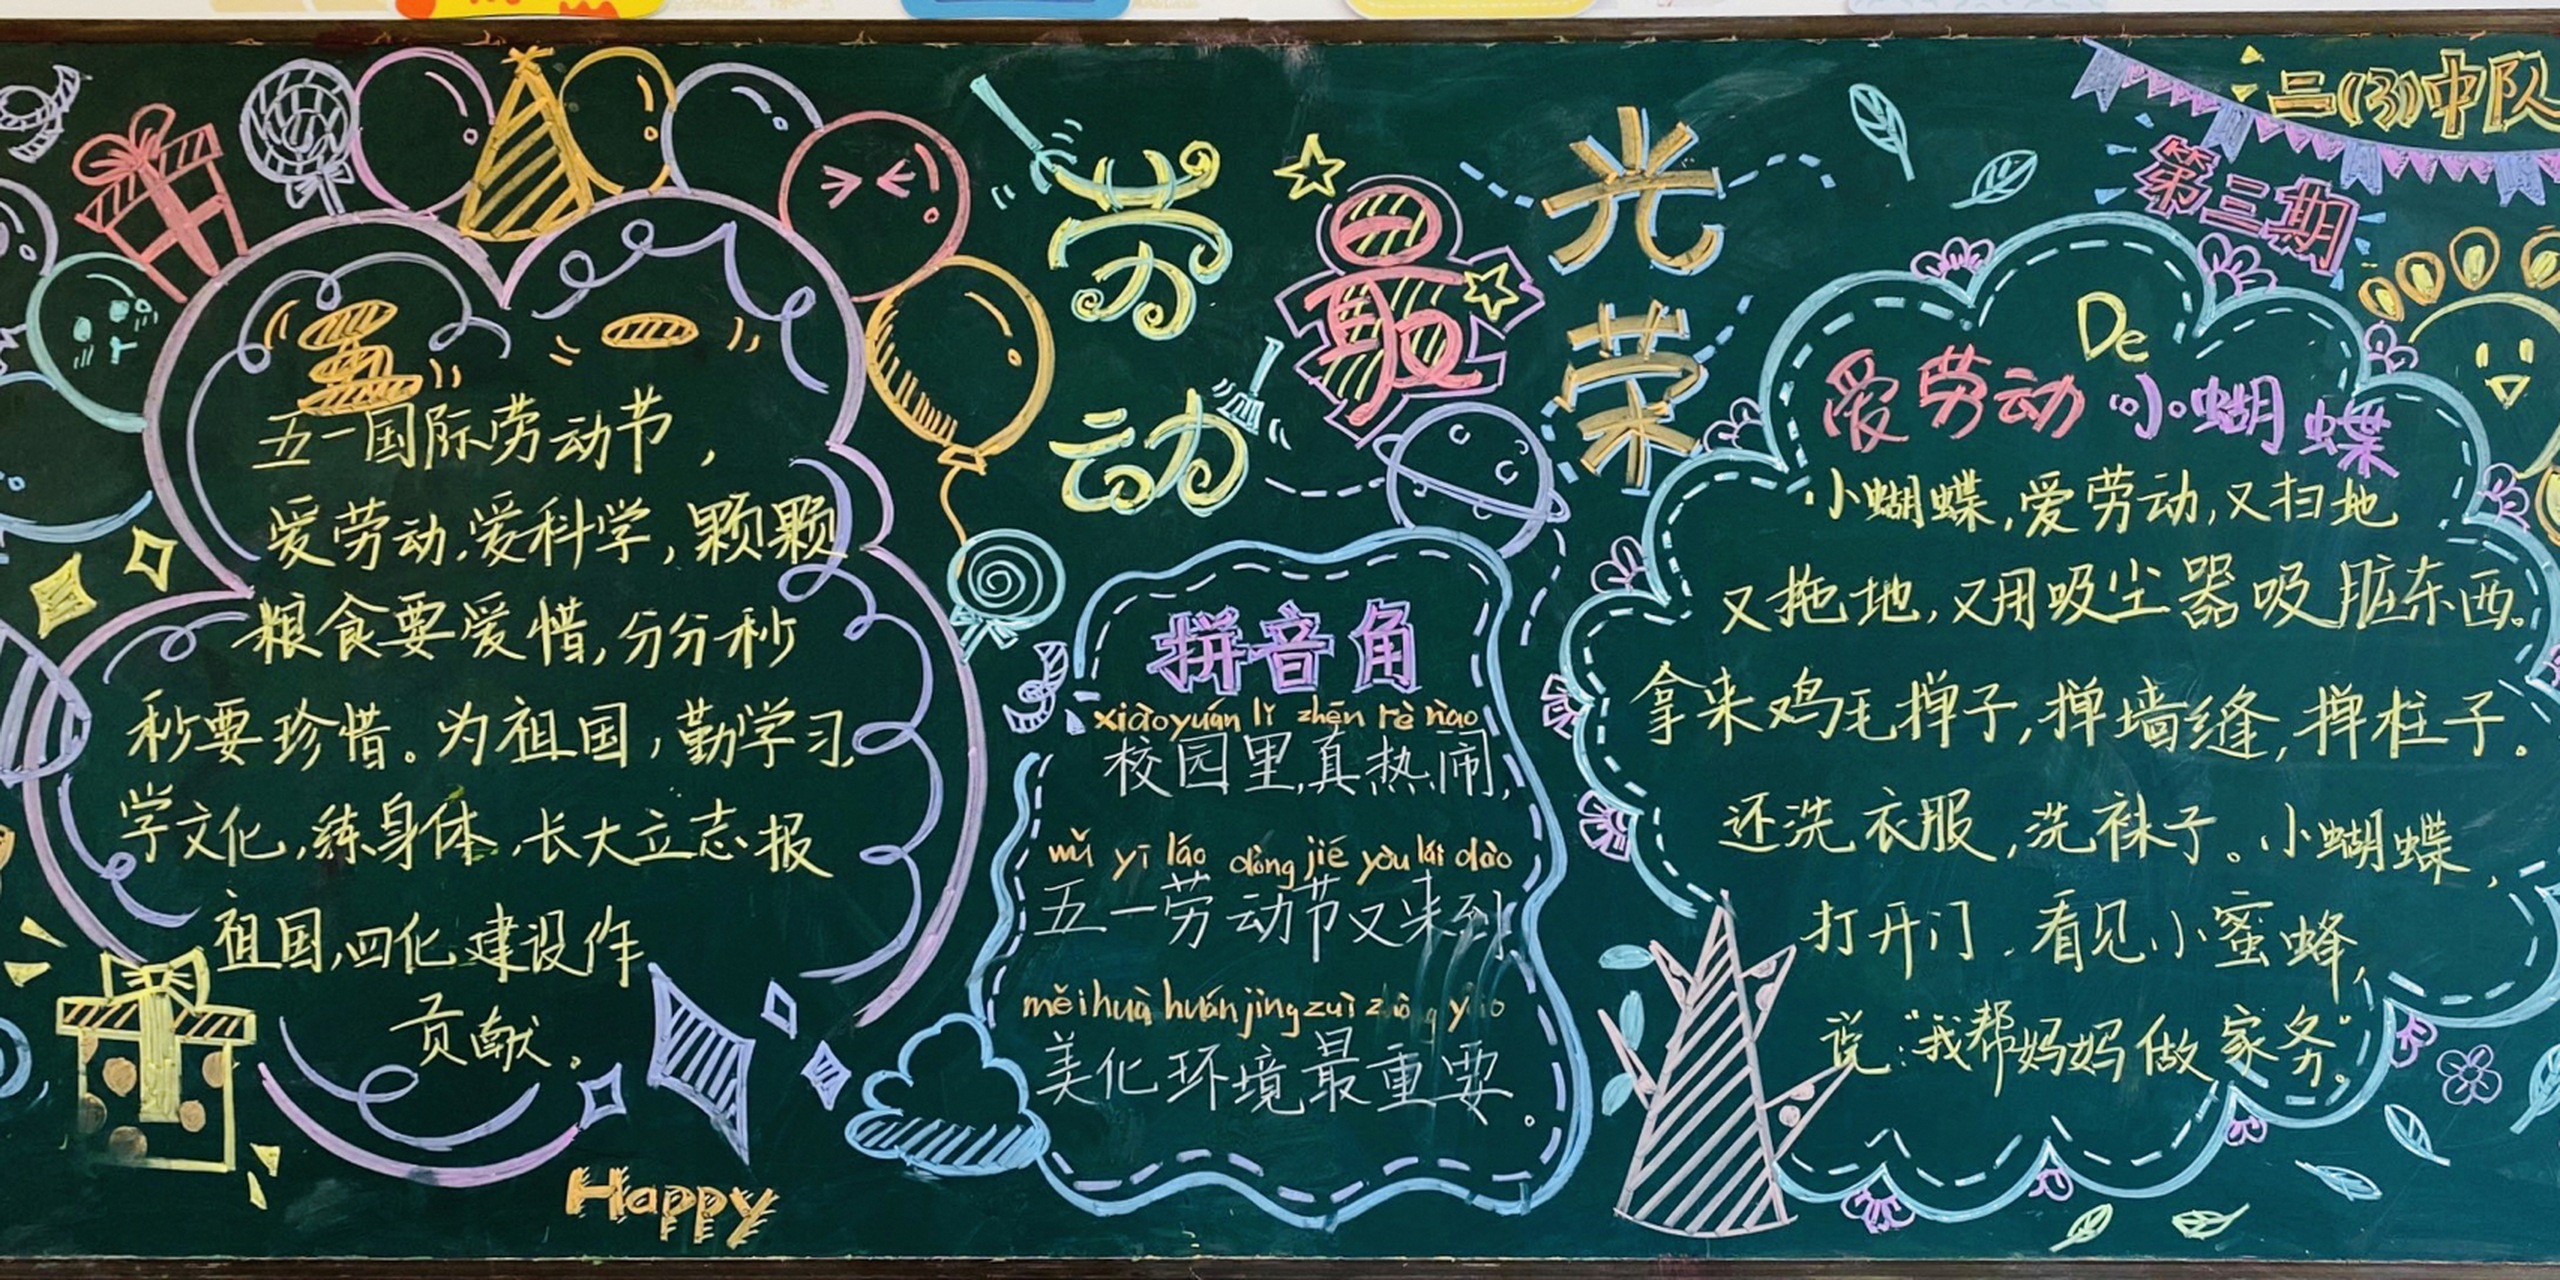 五一
五一国际劳动节，
爱劳动，爱科学，颗颗
粮食要爱惜，分分秒
秒要珍惜。为祖国，勤学习，
学文化，练身体，长大立志报
祖国，四化建设作
贡献。
Happy
劳动最光荣
拼音角
xiàoyuán lǐ zhēn rè nào
校园里真热闹，
wǔ yī láo dòng jié yòu lái dào
五一劳动节又来到
měihuà huánjìng zuì zhòng yào
美化环境最重要。
二(3)中队
第三期
爱劳动De小蝴蝶
小蝴蝶，爱劳动，又扫地
又拖地，又用吸尘器吸脏东西。
拿来鸡毛掸子，掸墙缝，掸柱子。
还洗衣服，洗袜子。小蝴蝶，
打开门，看见小蜜蜂，
说："我帮妈妈做家务"。